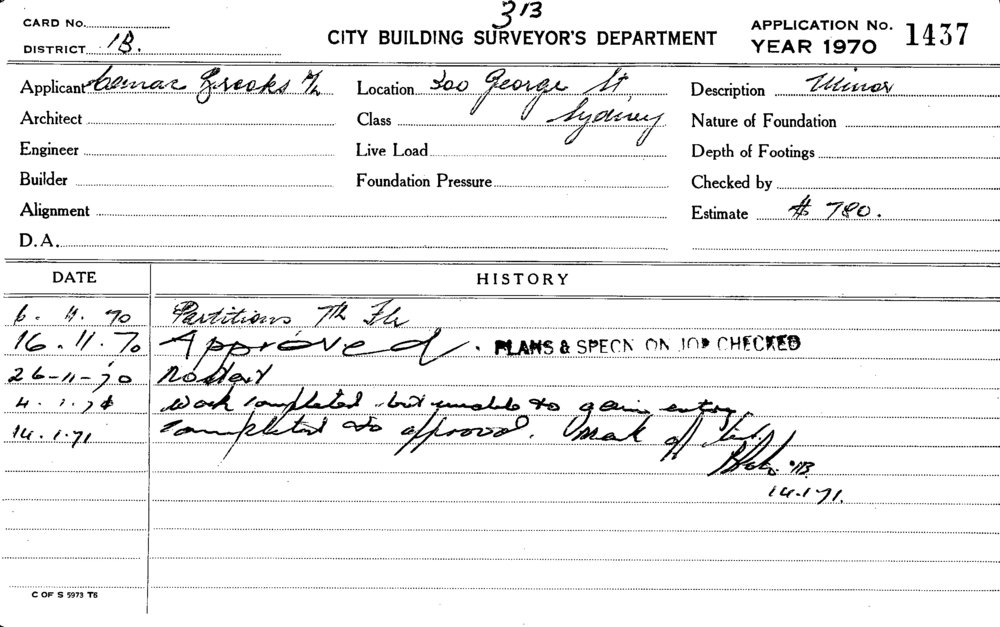 313
CARD No.
DISTRICT 1B.
CITY BUILDING SURVEYOR'S DEPARTMENT
APPLICATION No. 1437
YEAR 1970
Applicant
Location 300 George St
Sydney
Description Minor
Architect
Class
Nature of Foundation
Engineer
Live Load
Depth of Footings
Builder
Foundation Pressure
Checked by
Alignment
Estimate $ 780.
D.A.
DATE HISTORY
6. 11. 70 Partitions 7th Flr
16.11.70 Approved. PLANS & SPECN ON JOB CHECKED
26-11-70 No Start
4.1.71 Work completed but unable to gain entry
14.1.71 Completed to approval. Mark off
14.1.71.
C OF S 5973 T6